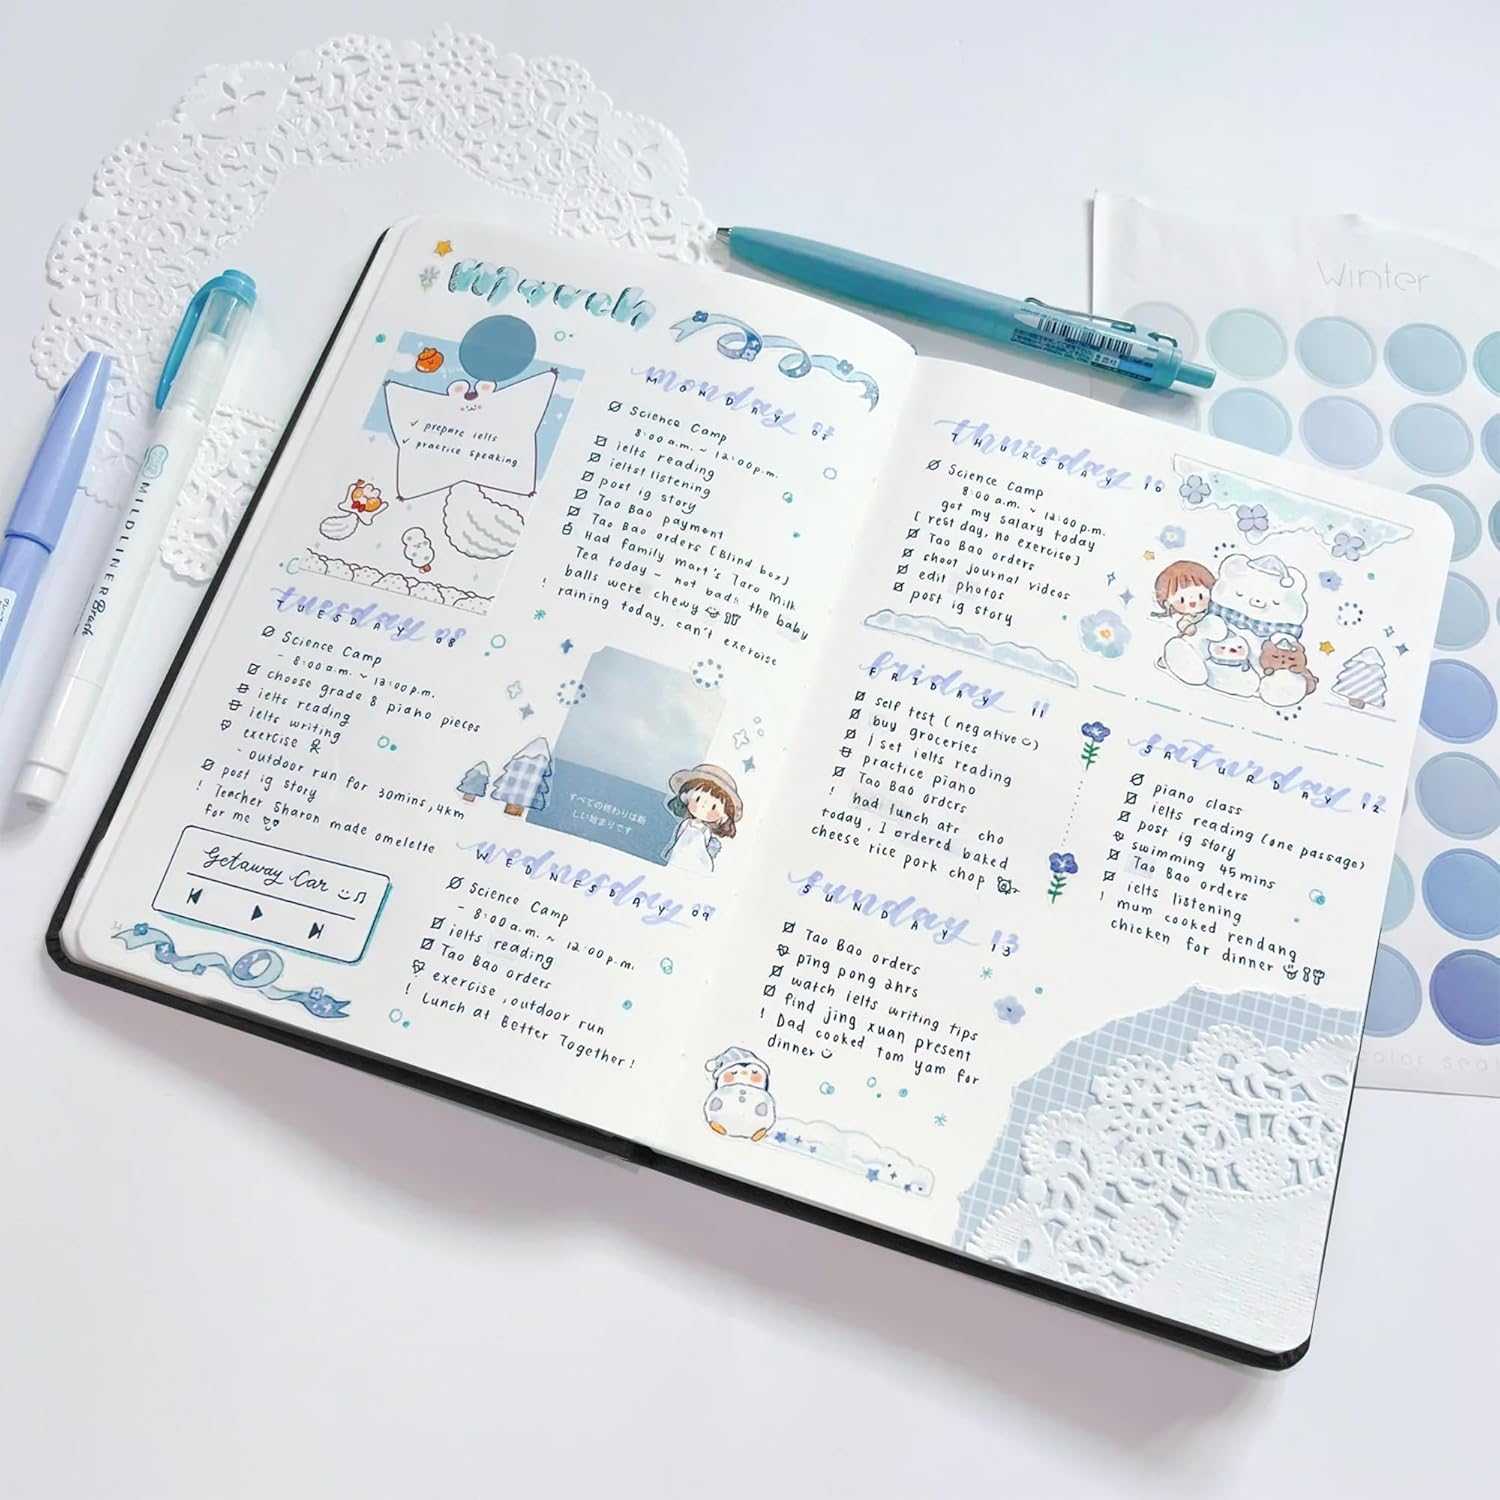 March
✓ prepare ielts
✓ practice speaking
monday 07
MONDAY
Science Camp
8:00 a.m. ~ 12:00 p.m.
ielts reading
ieltst listening
post ig story
Tao Bao payment
Tao Bao orders [Blind box]
Had family mart's Taro Milk
Tea today - not bad!! the baby
balls were chewy
! raining today, can't exercise
tuesday 08
TUESDAY
Science Camp
- 8:00 a.m. ~ 12:00 p.m.
choose grade 8 piano pieces
ielts reading
ielts writing
exercise
- outdoor run for 30mins, 4km
post ig story
! Teacher Sharon made omelette
for me
Getaway Car
34
すべての終わりは新
しい始まりです
wednesday 09
WEDNESDAY
Science Camp
- 8:00 a.m. ~ 12:00 p.m.
ielts reading
Tao Bao orders
exercise, outdoor run
! Lunch at Better Together!
thursday 10
THURSDAY
Science Camp
8:00 a.m. ~ 12:00 p.m.
got my salary today
[rest day, no exercise]
Tao Bao orders
shoot journal videos
edit photos
post ig story
friday 11
FRIDAY
self test (negative)
buy groceries
1 set ielts reading
practice piano
Tao Bao orders
! had lunch atr cho
today, I ordered baked
cheese rice pork chop
saturday 12
SATURDAY
piano class
ielts reading (one passage)
post ig story
swimming 45mins
Tao Bao orders
ielts listening
! mum cooked rendang
chicken for dinner
sunday 13
SUNDAY
Tao Bao orders
ping pong 2hrs
watch ielts writing tips
find jing xuan present
! Dad cooked tom yam for
dinner
MILDLINER Brush
Winter
color seal